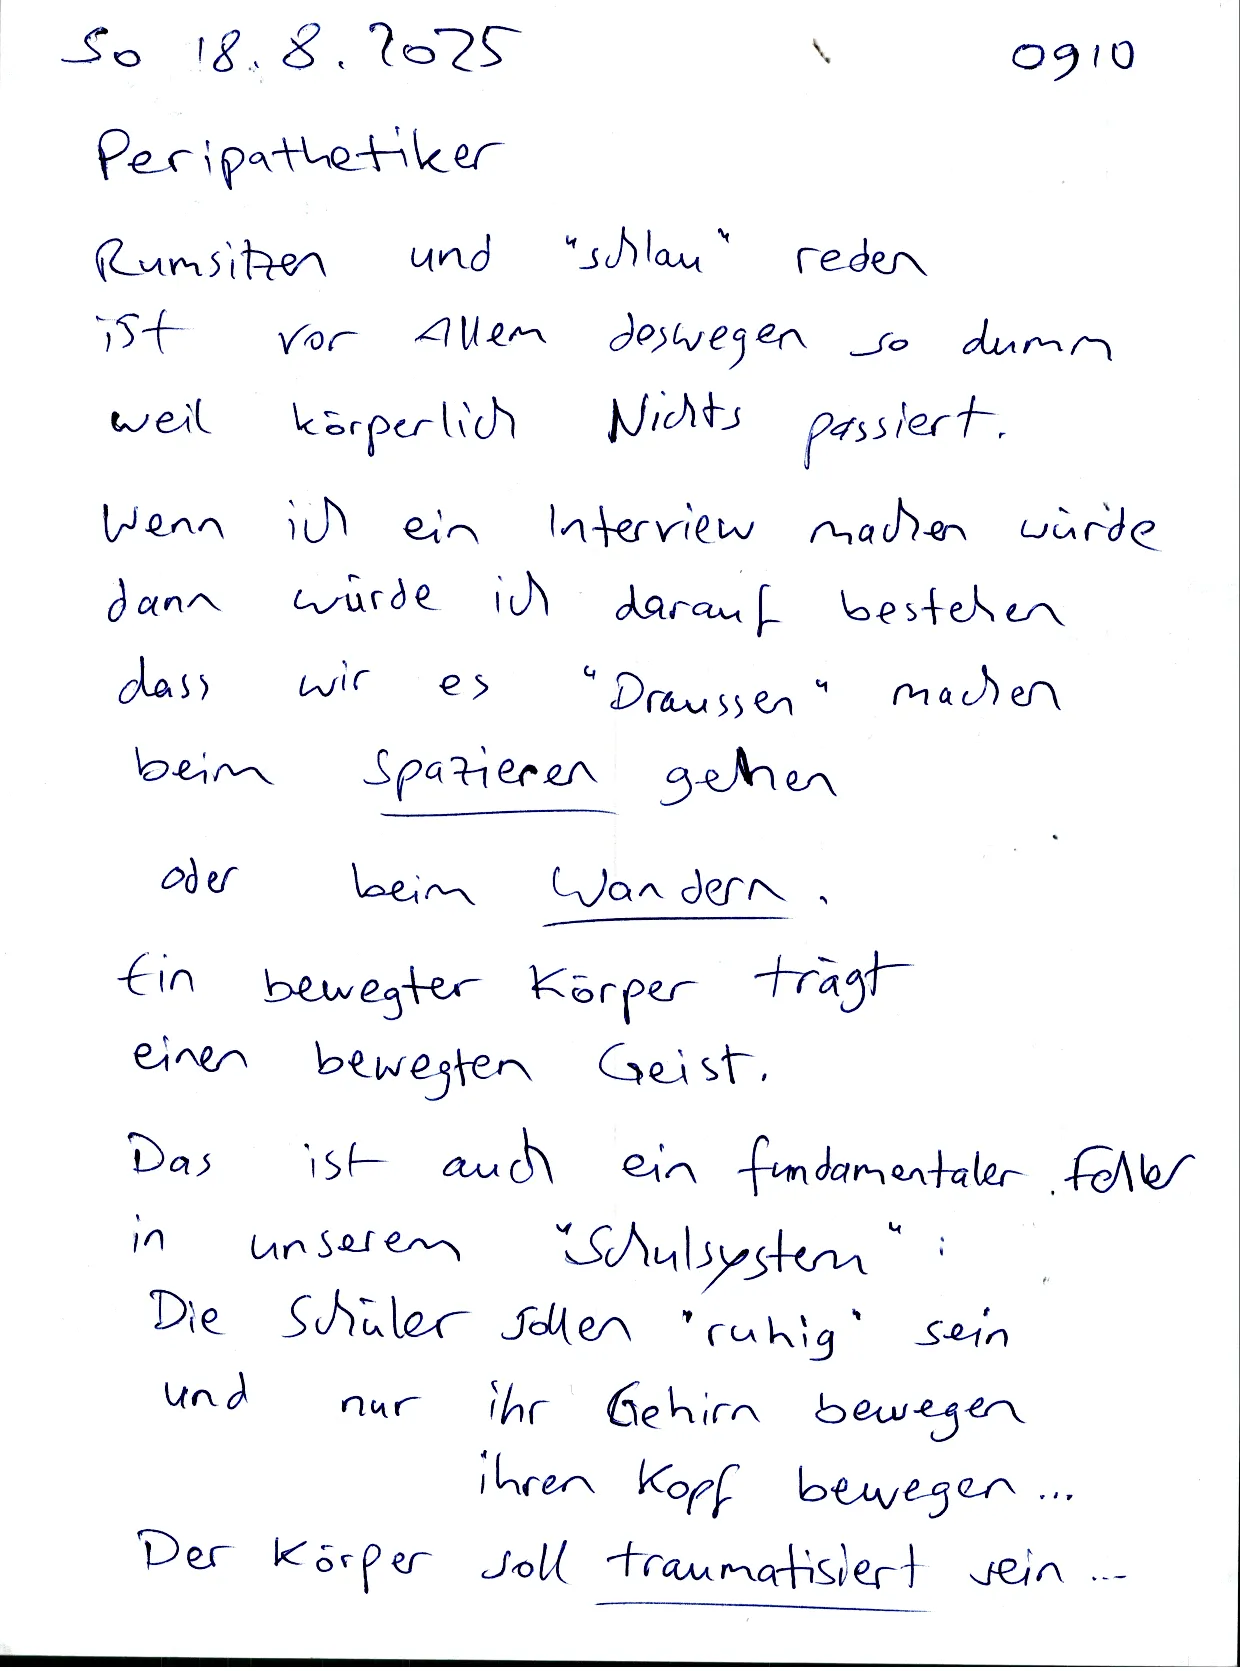 So 18.8.2025 0910
Peripathetiker
Rumsitzen und "schlau" reden
ist vor Allem deswegen so dumm
weil körperlich Nichts passiert.
Wenn ich ein Interview machen würde
dann würde ich darauf bestehen
dass wir es "Draussen" machen
beim spazieren gehen
oder beim Wandern.
Ein bewegter Körper trägt
einen bewegten Geist.
Das ist auch ein fundamentaler Fehler
in unserem "Schulsystem":
Die Schüler sollen "ruhig" sein
und nur ihr Gehirn bewegen
ihren Kopf bewegen...
Der Körper soll traumatisiert sein...